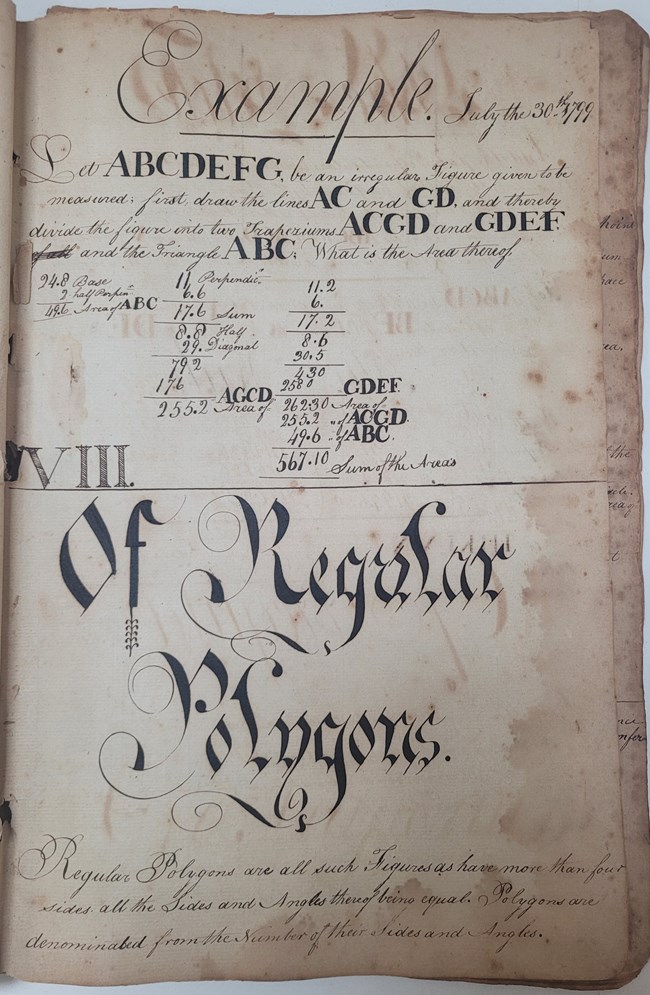 Example. July the 30th 1799
Let ABCDEFG, be an irregular Figure given to be
measured: first draw the lines AC and GD, and thereby
divide the figure into two Trapeziums ACGD and GDEF
and the Triangle ABC; What is the Area thereof
24.8 Base
2 half Perpen
49.6 Area of ABC
11 Perpendic
6.6
17.6 Sum
8.8 Half
29. Diagonal
792
176
255.2 Area of AGCD
11.2
6.
17.2
8.6
30.5
430
2580
262.30 Area of GDEF
255.2 " of ACGD
49.6 " of ABC.
567.10 Sum of the Area's
VIII.
Of Regular
Polygons.
Regular Polygons are all such Figures as have more than four
sides. all the Sides and Angles thereof being equal. Polygons are
denominated from the Number of their Sides and Angles.